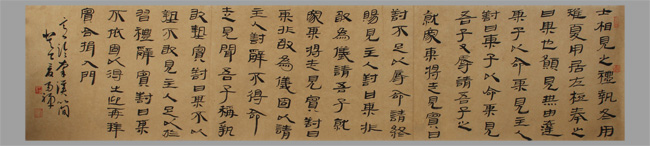 士相見之禮執冬用
雉夏用居左柱奉之
曰某也願見無由達
某子以命某見主人
對曰某子以命某見
吾子又辱請吾子之
就家某將走見賓曰
對不足以辱命請終
賜見主人對曰某非
敢為儀請吾子就
家某將走見賓對曰
某非敢為儀固以請
主人對辭不得命
走見聞吾子稱執
敢執賓對曰某不以
執不敢見主人足以
習禮辭賓對曰某
不依固以得出迎再拜
賓入門